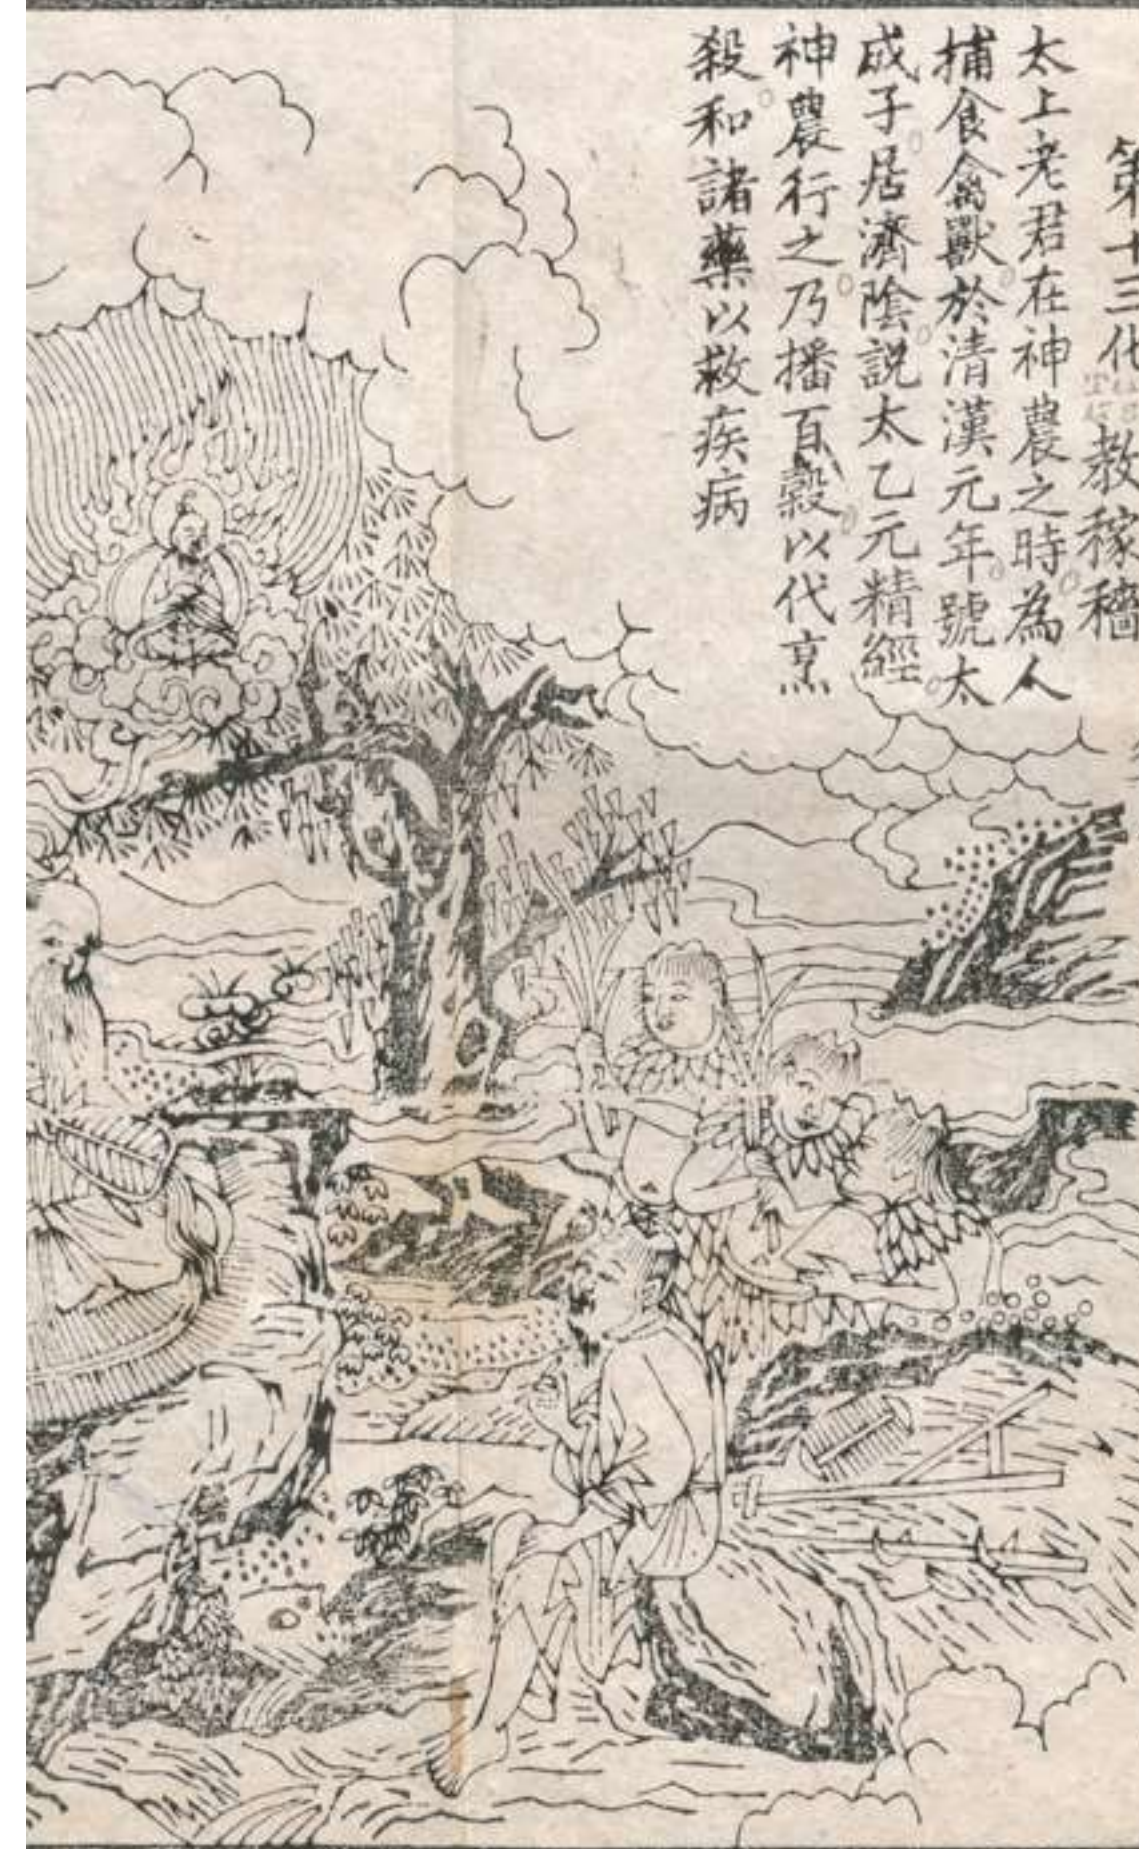 第十三化教稼穡
太上老君在神農之時為人
捕食禽獸於清漢元年號太
成子居濟陰説太乙元精經
神農行之乃播百穀以代烹
殺和諸藥以救疾病